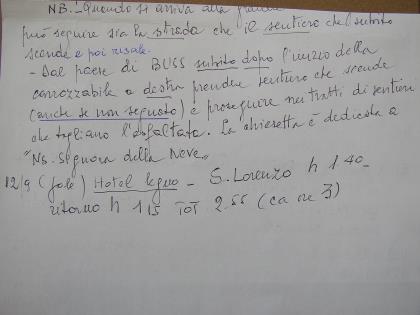 NB. - Quando si arriva alla
può seguire sia la strada che il sentiero che subito
scende e poi risale.
- Dal paese di BUSS subito dopo l'inizio della
carrozzabile a destra prendere sentiero che scende
(anche se non segnato) e proseguire nei tratti di sentiero
che tagliano l'asfaltata. La chiesetta è dedicata a
"Ns. Signora della Neve"
12/9 (solo) Hotel legno - S. Lorenzo h 1 40 -
ritorno h 1 15 TOT 2.55 (ca ore 3)